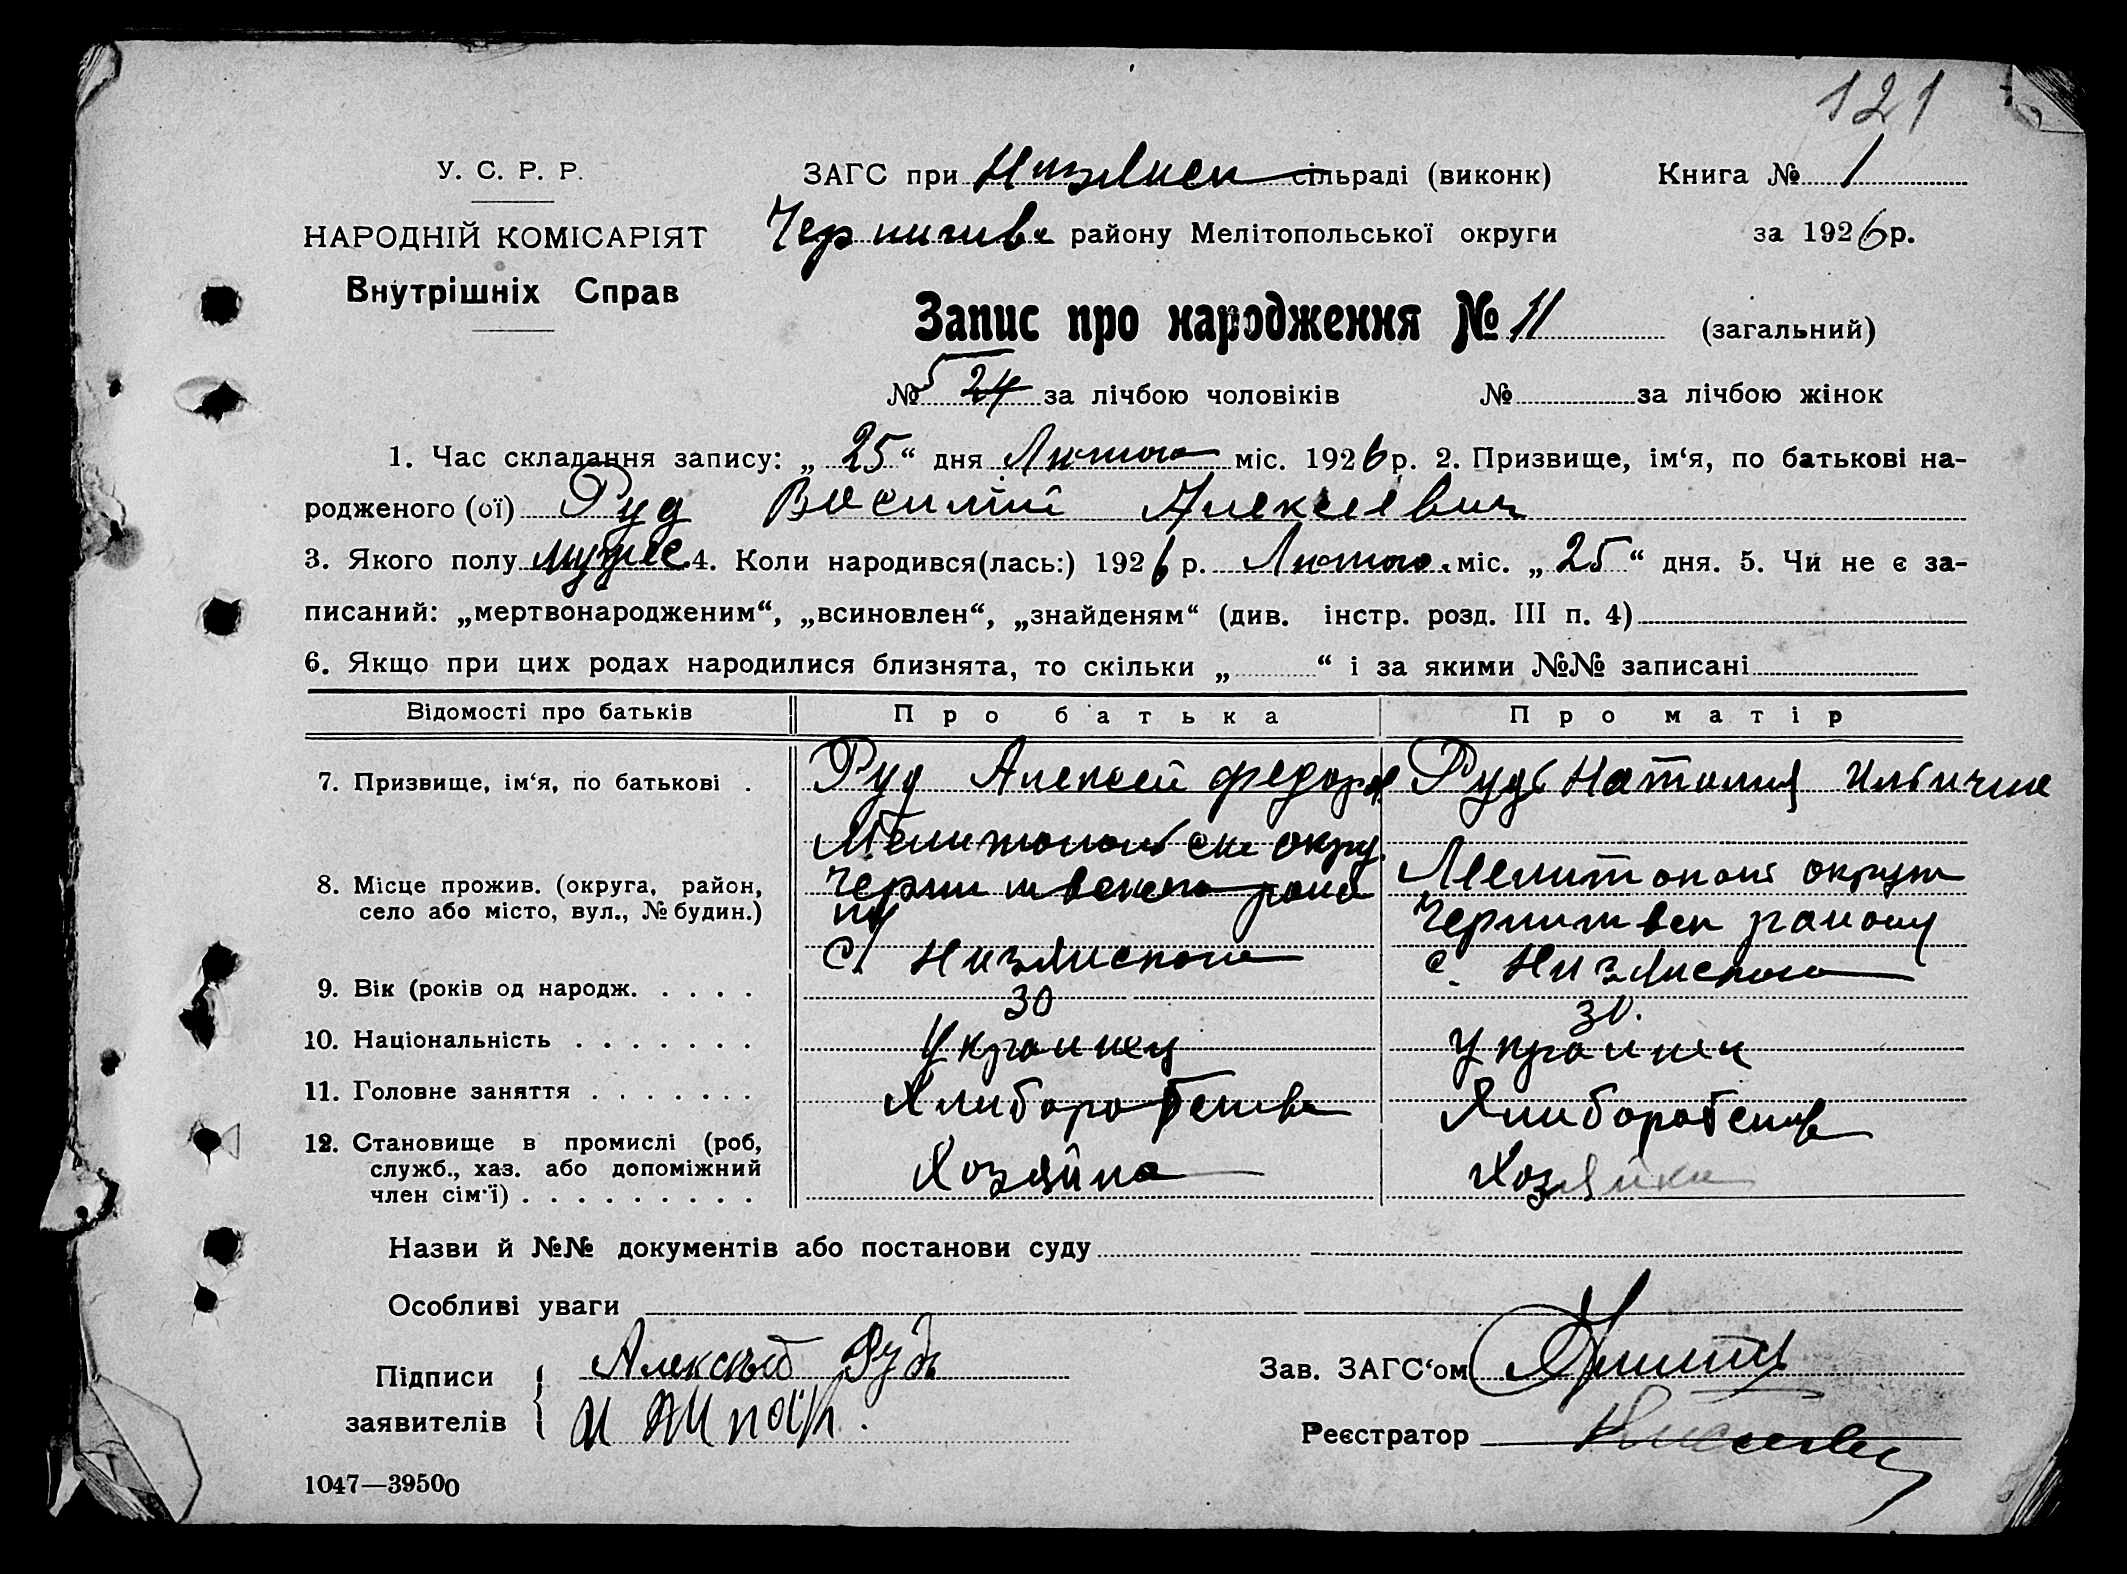 121
У. С. Р. Р.
ЗАГС при Низянск сільраді (виконк)
Книга № 1
НАРОДНІЙ КОМІСАРІЯТ
Чернигивск району Мелітопольської округи
за 1926 р.
Внутрішніх Справ
Запис про народження № 11 (загальний)
№ 5 24 за лічбою чоловіків № за лічбою жінок
1. Час складання запису: „ 25 “ дня Лютого міс. 1926 р. 2. Призвище, ім‘я, по батькові на-
родженого (ої) Руд Василій Алексеевич
3. Якого полу мужес 4. Коли народився(лась:) 1926 р. Лютого міс. „ 25 “ дня. 5. Чи не є за-
писаний: „мертвонародженим“, „всиновлен“, „знайденям“ (див. інстр. розд. III п. 4)
6. Якщо при цих родах народилися близнята, то скільки „ “ і за якими №№ записані
Відомості про батьків Про батька Про матір
7. Призвище, ім‘я, по батькові . Руд Алексей Федоров Рудь Наталия Ильични
8. Місце прожив. (округа, район,
село або місто, вул., № будин.)
Мелитопольск округ
Мелитопол округи
району
с.
с.
9. Вік (років од народж. . . . . 30 30.
10. Національність . . . . . . . Украинец Украинк
11. Головне заняття . . . . . . . Хлиборобство Хлиборобств
12. Становище в промислі (роб,
служб., хаз. або допоміжний
член сім‘ї) . . . . . . . . . Хозяйна Хозяйка
Назви й №№ документів або постанови суду
Особливі уваги
Підписи
заявителів
Руд
Зав. ЗАГС‘ом
Реєстратор
1047—39500